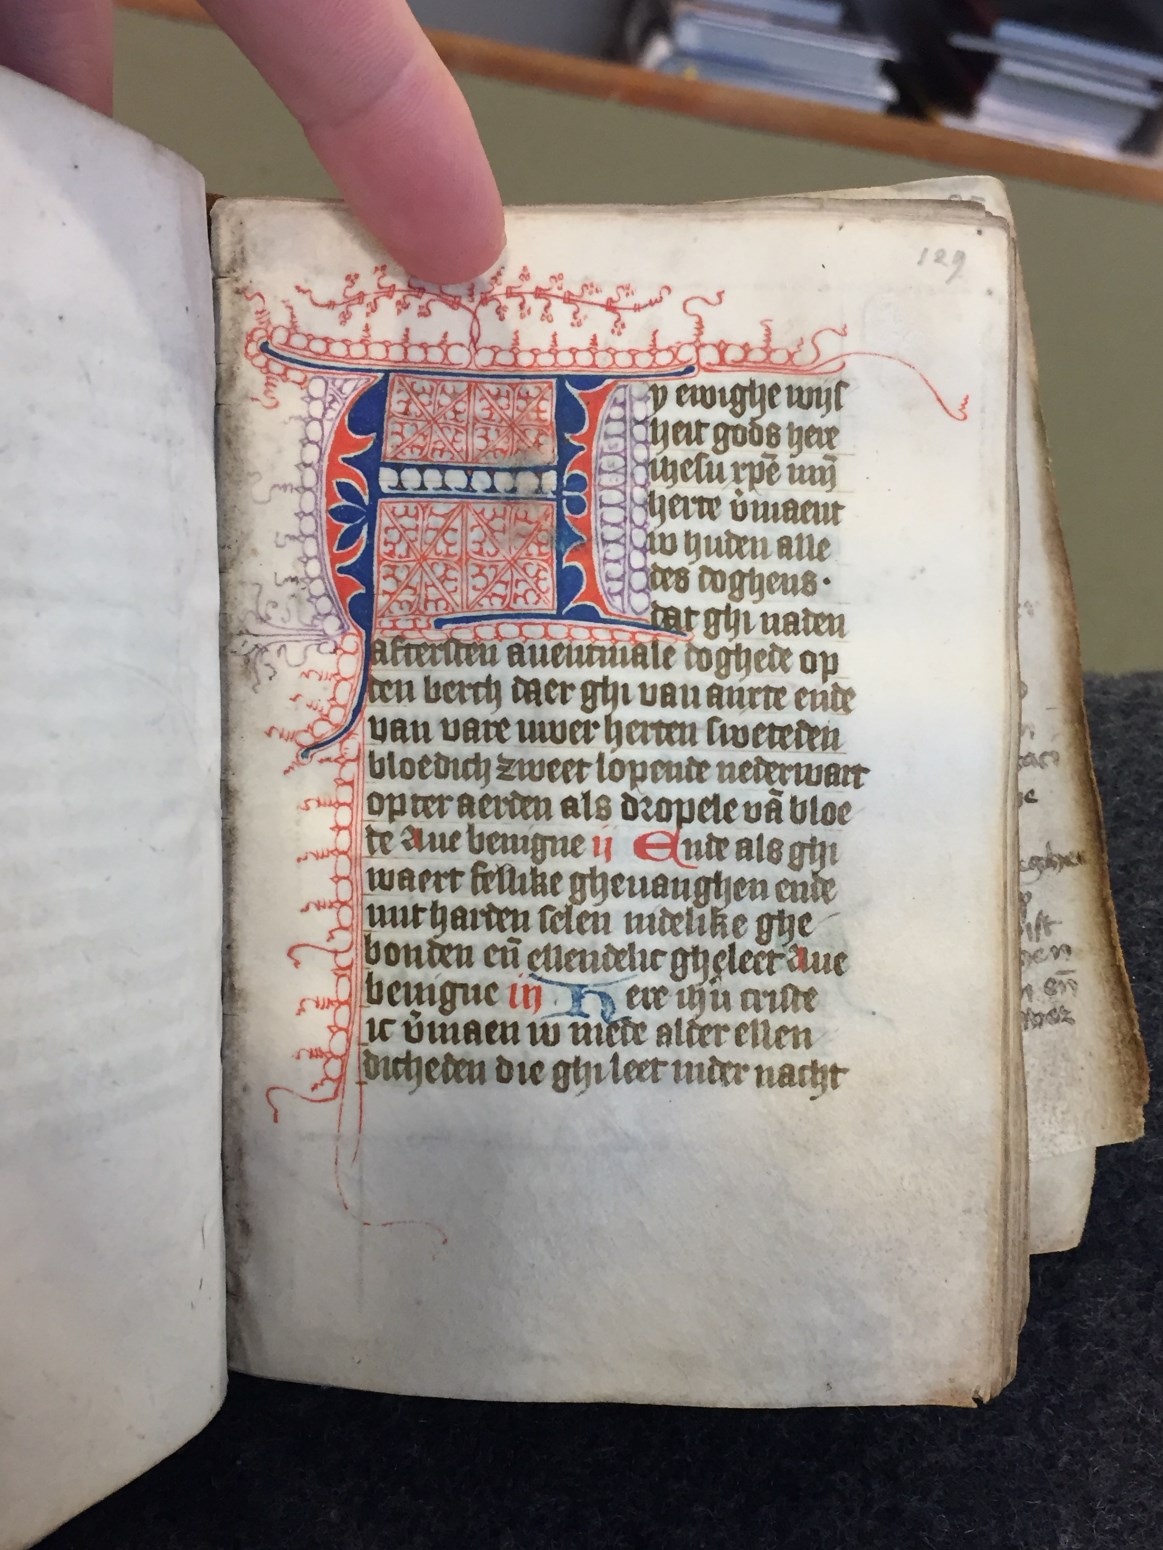 129
Hy ewighe wijs
heit gods here
ihesu xpē mij
herte v̄maent
iv huden alle
des doghens·
dat ghi naden
aftersten auentmale doghede op
den berch daer ghi van anxte ende
van vare uwer herten sweteden
bloedich zweet lopende nederwart
op ter aerden als dropele vā bloe
de Aue benigne ij Ende als ghi
waert fellike gheuanghen ende
mit harden selen nidelike ghe
bonden en̄ ellendelic gheleet Aue
benigne iij Here ihū criste
ic v̄maen iv mede alder ellen
dicheden die ghi leet inder nacht